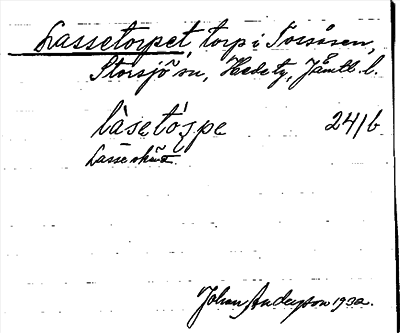 Lassetorpet, torp i Torsåsen,
Storsjö sn, Hede tg, Jämtl. l.
làsetóṣpe 24/6
Lasse
Johan Anderson 1932.